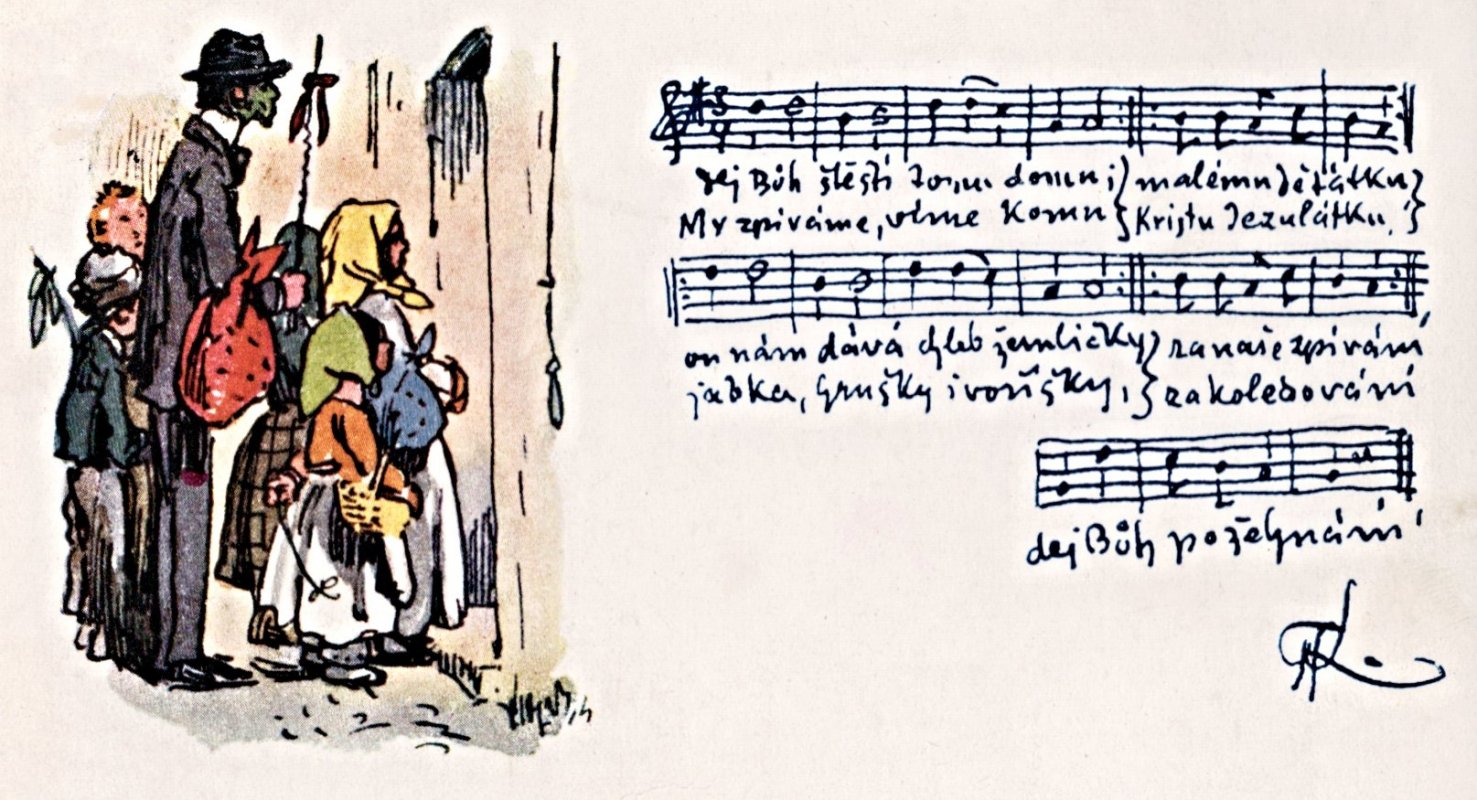 dej Bůh štěstí tomu domu i malému děťátku
My zpíváme, víme komu Kristu Jezulátku!
on nám dává chleb žemličky za naše zpívání
jabka, hrušky i voříšky, za koledování
dej Bůh požehnání